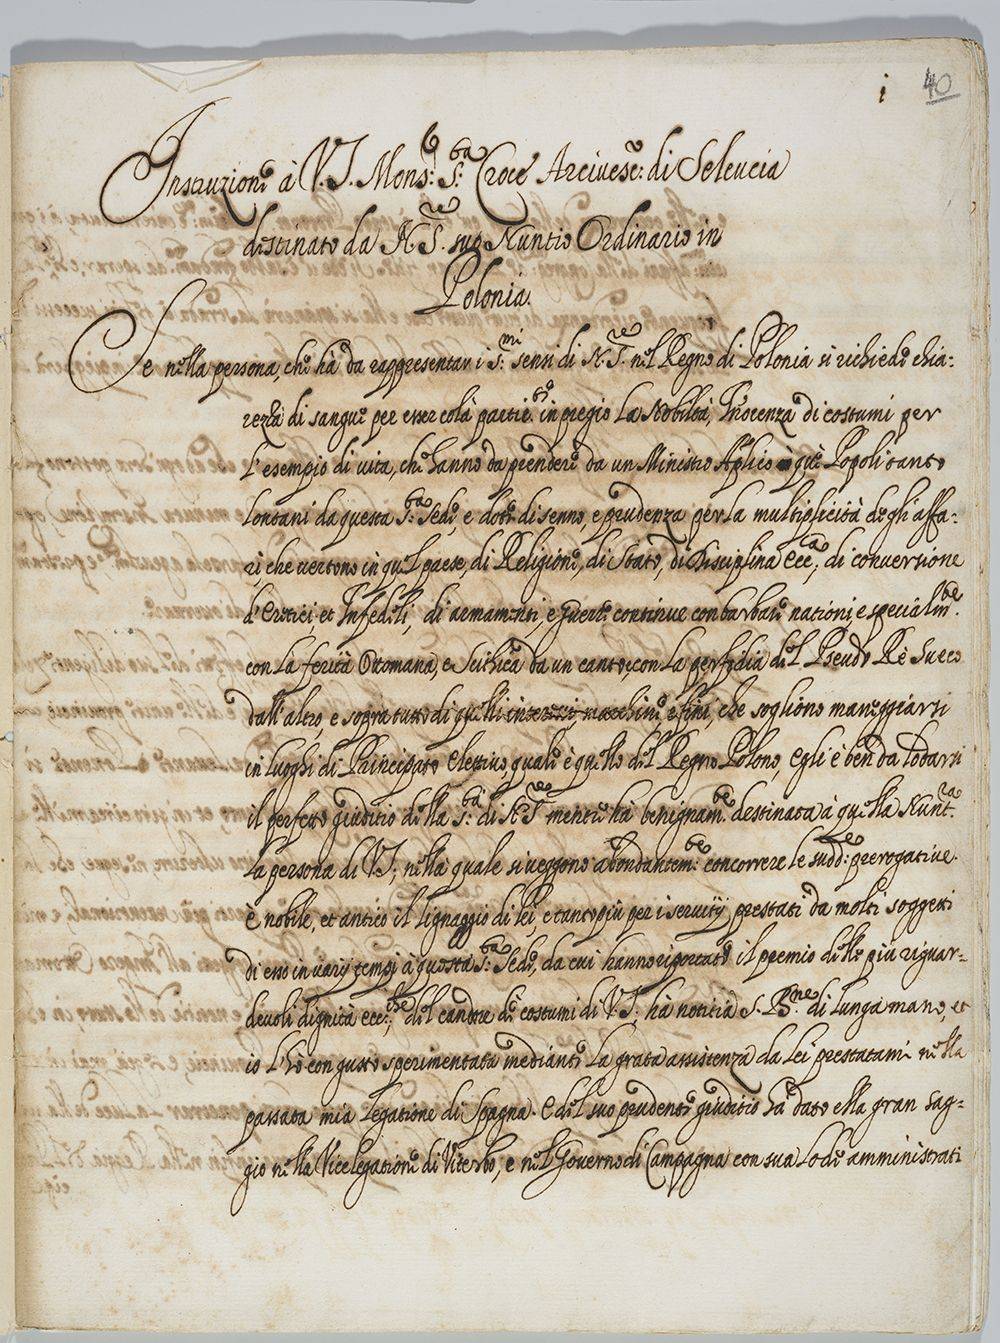 i 40
Instruzione à V.S. Mons:r S:ta Croce Arcivesc:o di Seleucia
destinato da N. S.re suo Nuntio Ordinario in
Polonia.
Se nella persona, che hà da rappresentar i S:mi sensi di N. S.re nel Regno di Polonia si richiede chia=
rezza di sangue per esser colà in pregio la Nobiltà, Inocenza di costumi per
l'esempio di vita, che hanno da prendere da un Ministro Aplico quei Popoli tanto
lontani da questa S:ta Sede, e dote di senno, e prudenza per la multiplicità degli affa=
ri, che vertono in quel paese, di Religione, di Stato, di Disciplina Ecc:ca, di conversione
d'Eretici, et Infedeli, di armamenti, e guerre continue con barbare nationi, e specialm:te
con la ferità Ottomana, e Scithica da un canto, e con la perfidia del Pseudo Rè Sueco
dall'altro, e sopra tutto di quelli interessi machine, e fini, che sogliono maneggiarsi
in luoghi di Principato elettivo, quale è quello del Regno Polono, egli è ben da lodarsi
il perfetto giuditio della S:tà di N. S.re mentre hà benignam:te destinata à quella Nunt:ra
la persona di V.S., nella quale si veggono abondantem:te concorrere le sudd:e prerogative.
è nobile, et antico il lignaggio di lei, e tanto più per i servitij prestati da molti soggetti
di esso in varij tempi à questa S:ta Sede, da cui hanno riportato il premio delle più riguar=
devoli dignità ecc:che del candore de costumi di V.S. hà notitia S. B:ne di lunga mano, et
io l'hò con gusto sperimentata mediante la grata assistenza da lei prestatami nella
passata mia legatione di Spagna. E del suo prudente giuditio hà dato ella gran sag=
gio nella Vicelegatione di Viterbo, e nel Governo di Campagna con sua lode amministrati